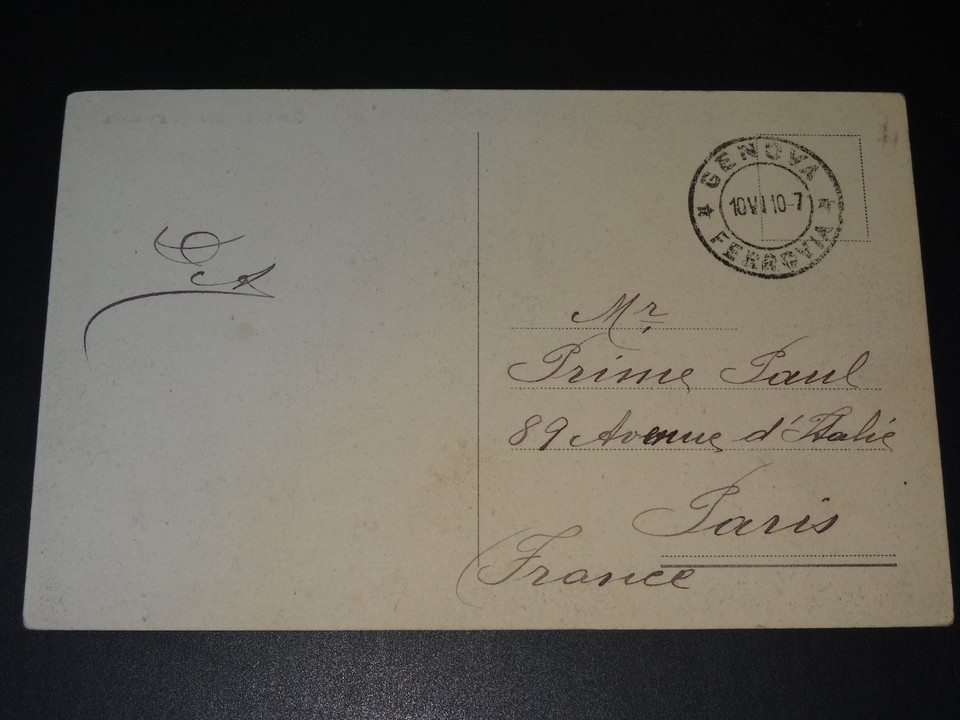 GENOVA
10 VI 10-7
FERROVIA
Mr
Prime Paul
89 Avenue d'Italie
Paris
France